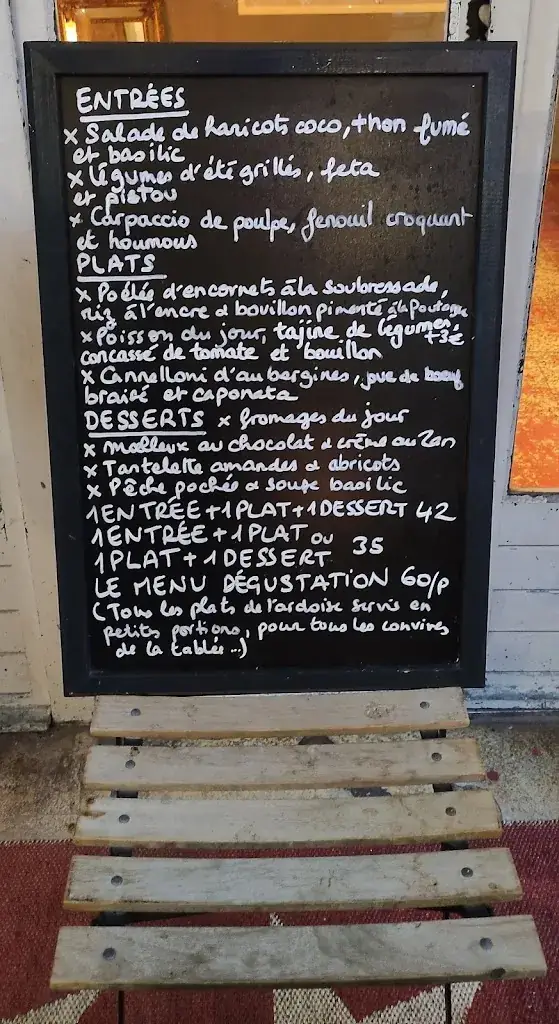 ENTRÉES
x Salade de haricots coco, thon fumé
et basilic
x Légumes d'été grillés, feta
et pistou
x Carpaccio de poulpe, fenouil croquant
et houmous
PLATS
x Poêlée d'encornets à la soubressade,
riz à l'encre & bouillon pimenté à la
x Poisson du jour, tajine de légumes,
+3€
concassé de tomate et bouillon
x Cannelloni d'aubergines, joue de boeuf
braisé et caponata
DESSERTS x fromages du jour
x Moelleux au chocolat & crème au
x Tartelette amandes & abricots
x Pêche pochée & soupe basilic
1 ENTRÉE + 1 PLAT + 1 DESSERT 42
1 ENTRÉE + 1 PLAT OU
1 PLAT + 1 DESSERT 35
LE MENU DÉGUSTATION 60/p
(Tous les plats de l'ardoise servis en
petites portions, pour tous les convives
de la tablée...)